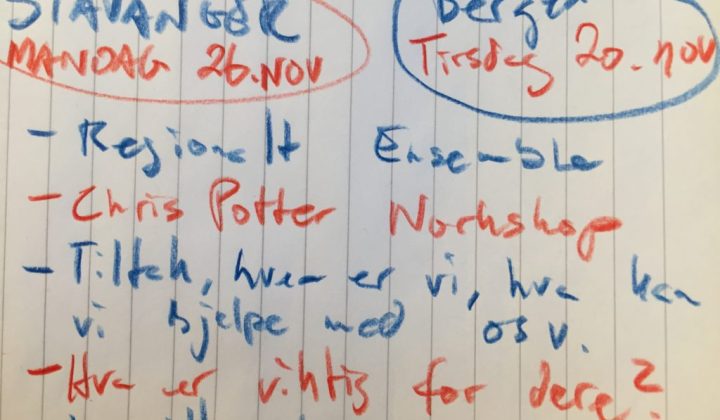 STAVANGER
MANDAG 26.NOV
Bergen
Tirsdag 20. nov
- Regionalt Ensemble
- Chris Potter Workshop
- Tiltak, hvem er vi, hva kan
vi hjelpe med osv.
- Hva er viktig for dere?